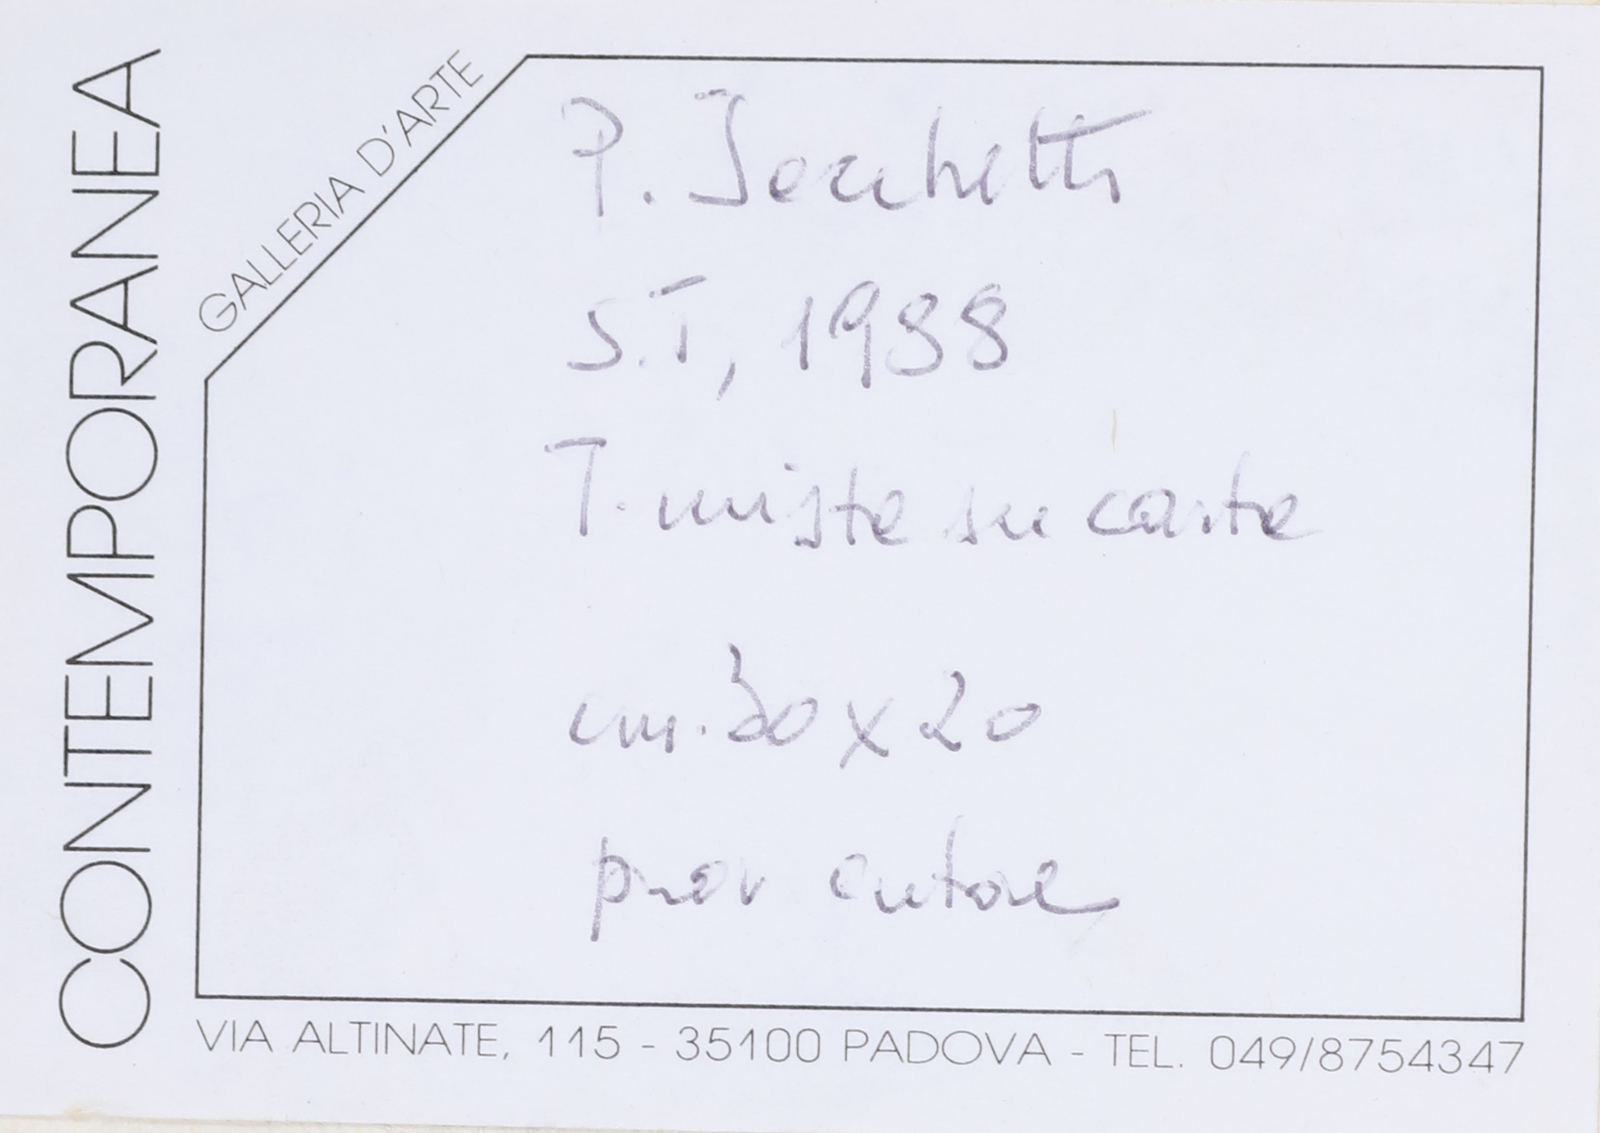 CONTEMPORANEA
GALLERIA D'ARTE
P. Iacchetti
S.T, 1988
T. mista su carta
cm. 30 x 20
prov autore
VIA ALTINATE, 115 - 35100 PADOVA - TEL. 049/8754347